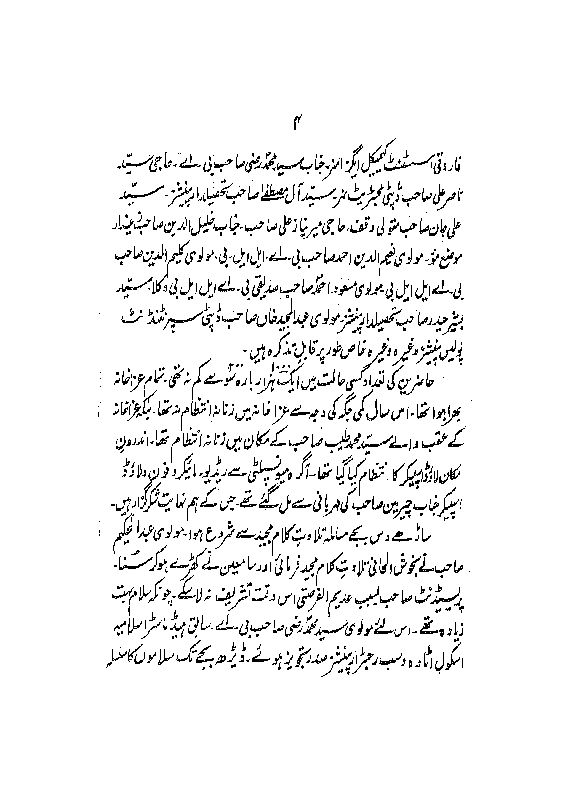 ۴
فاروقی اسسٹنٹ کیمیکل ایگزامنر۔ جناب سید محمد رضی صاحب بی۔ اے۔ حاجی سید
ناصر علی صاحب ڈپٹی مجسٹریٹ نہر۔ سید آل مصطفےٰ صاحب تحصیلدار پنشنر۔ سید
علی جان صاحب متولی وقف، حاجی میر نیاز علی صاحب۔ جناب خلیل الدین صاحب زمیندار
موضع مئو۔ مولوی نعیم الدین احمد صاحب بی۔ اے۔ ایل۔ ایل۔ بی۔ مولوی کلیم الدین صاحب
بی۔ اے ایل ایل بی۔ مولوی مسعود احمد صاحب صدیقی بی۔ اے ایل ایل بی وکلا سید
بشیر حیدر صاحب تحصیلدار پنشنر مولوی عبدالمجید خاں صاحب ڈپٹی سپرنٹنڈنٹ
پولیس پنشنر وغیرہ وغیرہ خاص طور پر قابل تذکرہ ہیں۔
حاضرین کی تعداد کسی حالت میں ایک ہزار بارہ سو سے کم نہ تھی۔ تمام عزاخانہ
بھرا ہوا تھا۔ اس سال کمی جگہ کی وجہ سے عزاخانہ میں زنانہ انتظام نہ تھا۔ بلکہ عزاخانہ
کے عقب والے سید محمد طیب صاحب کے مکان میں زنانہ انتظام تھا۔ اندرون
مکان لاؤڈ اسپیکر کا انتظام کیا گیا تھا۔ آگرہ میونسپلٹی سے ریڈیو۔ مائیکروفون ولاؤڈ
اسپیکر جناب چیرمین صاحب کی مہربانی سے مل گئے تھے۔ جس کے ہم نہایت شکر گزار ہیں۔
ساڑھے دس بجے سالمہ تلاوت کلام مجید سے شروع ہوا۔ مولوی عبدالحکیم
صاحب نے بخوش الحانی تلاوت کلام مجید فرمائی اور سامعین نے کھڑے ہو کر سنا۔
پریسیڈنٹ صاحب بسبب عدیم الفرصتی اس وقت تشریف نہ لا سکے۔ چونکہ سلام بہت
زیادہ تھے۔ اس لئے مولوی سید محمد رضی صاحب بی۔ اے۔ سابق ہیڈ ماسٹر اسلامیہ
اسکول اٹاوہ وسب رجسٹرار پنشنر صدر تجویز ہوئے۔ ڈیڑھ بجے تک سلاموں کا سلسلہ